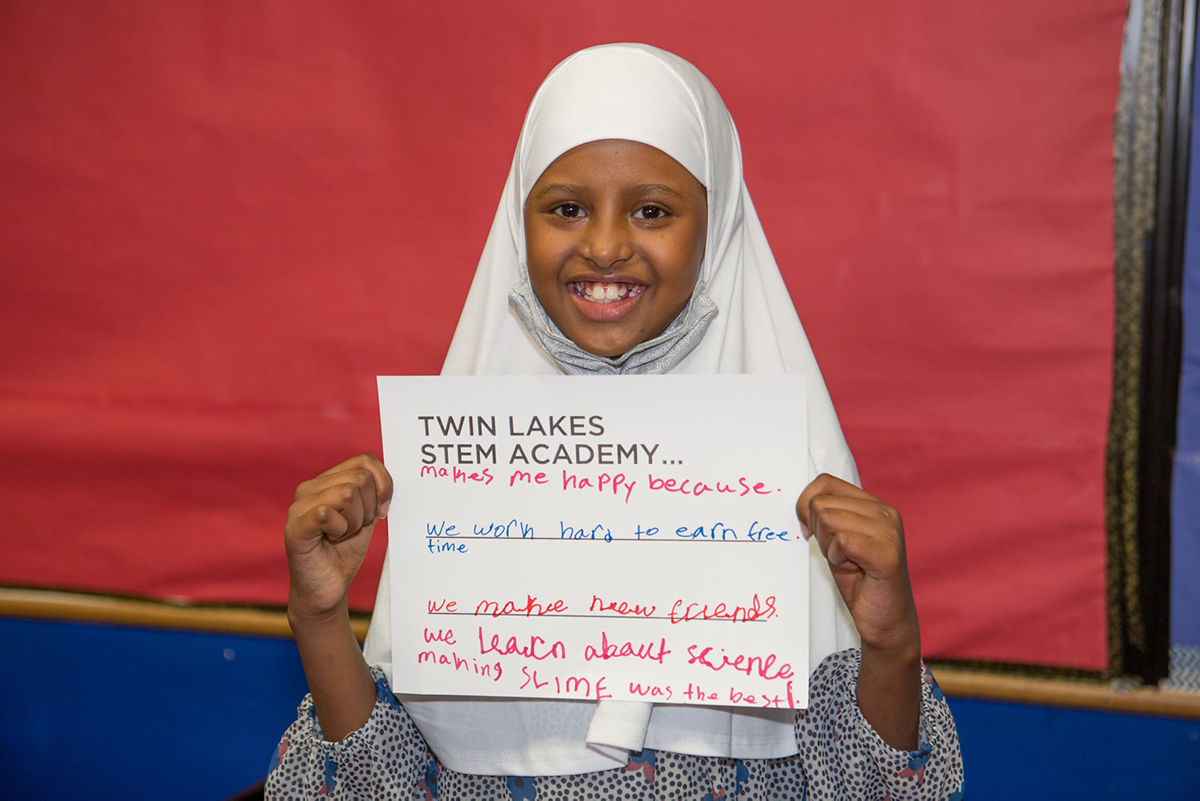 TWIN LAKES
STEM ACADEMY...
makes me happy because.
we work hard to earn free.
time
we make new friends.
we Learn about science
making SLIME was the best!.